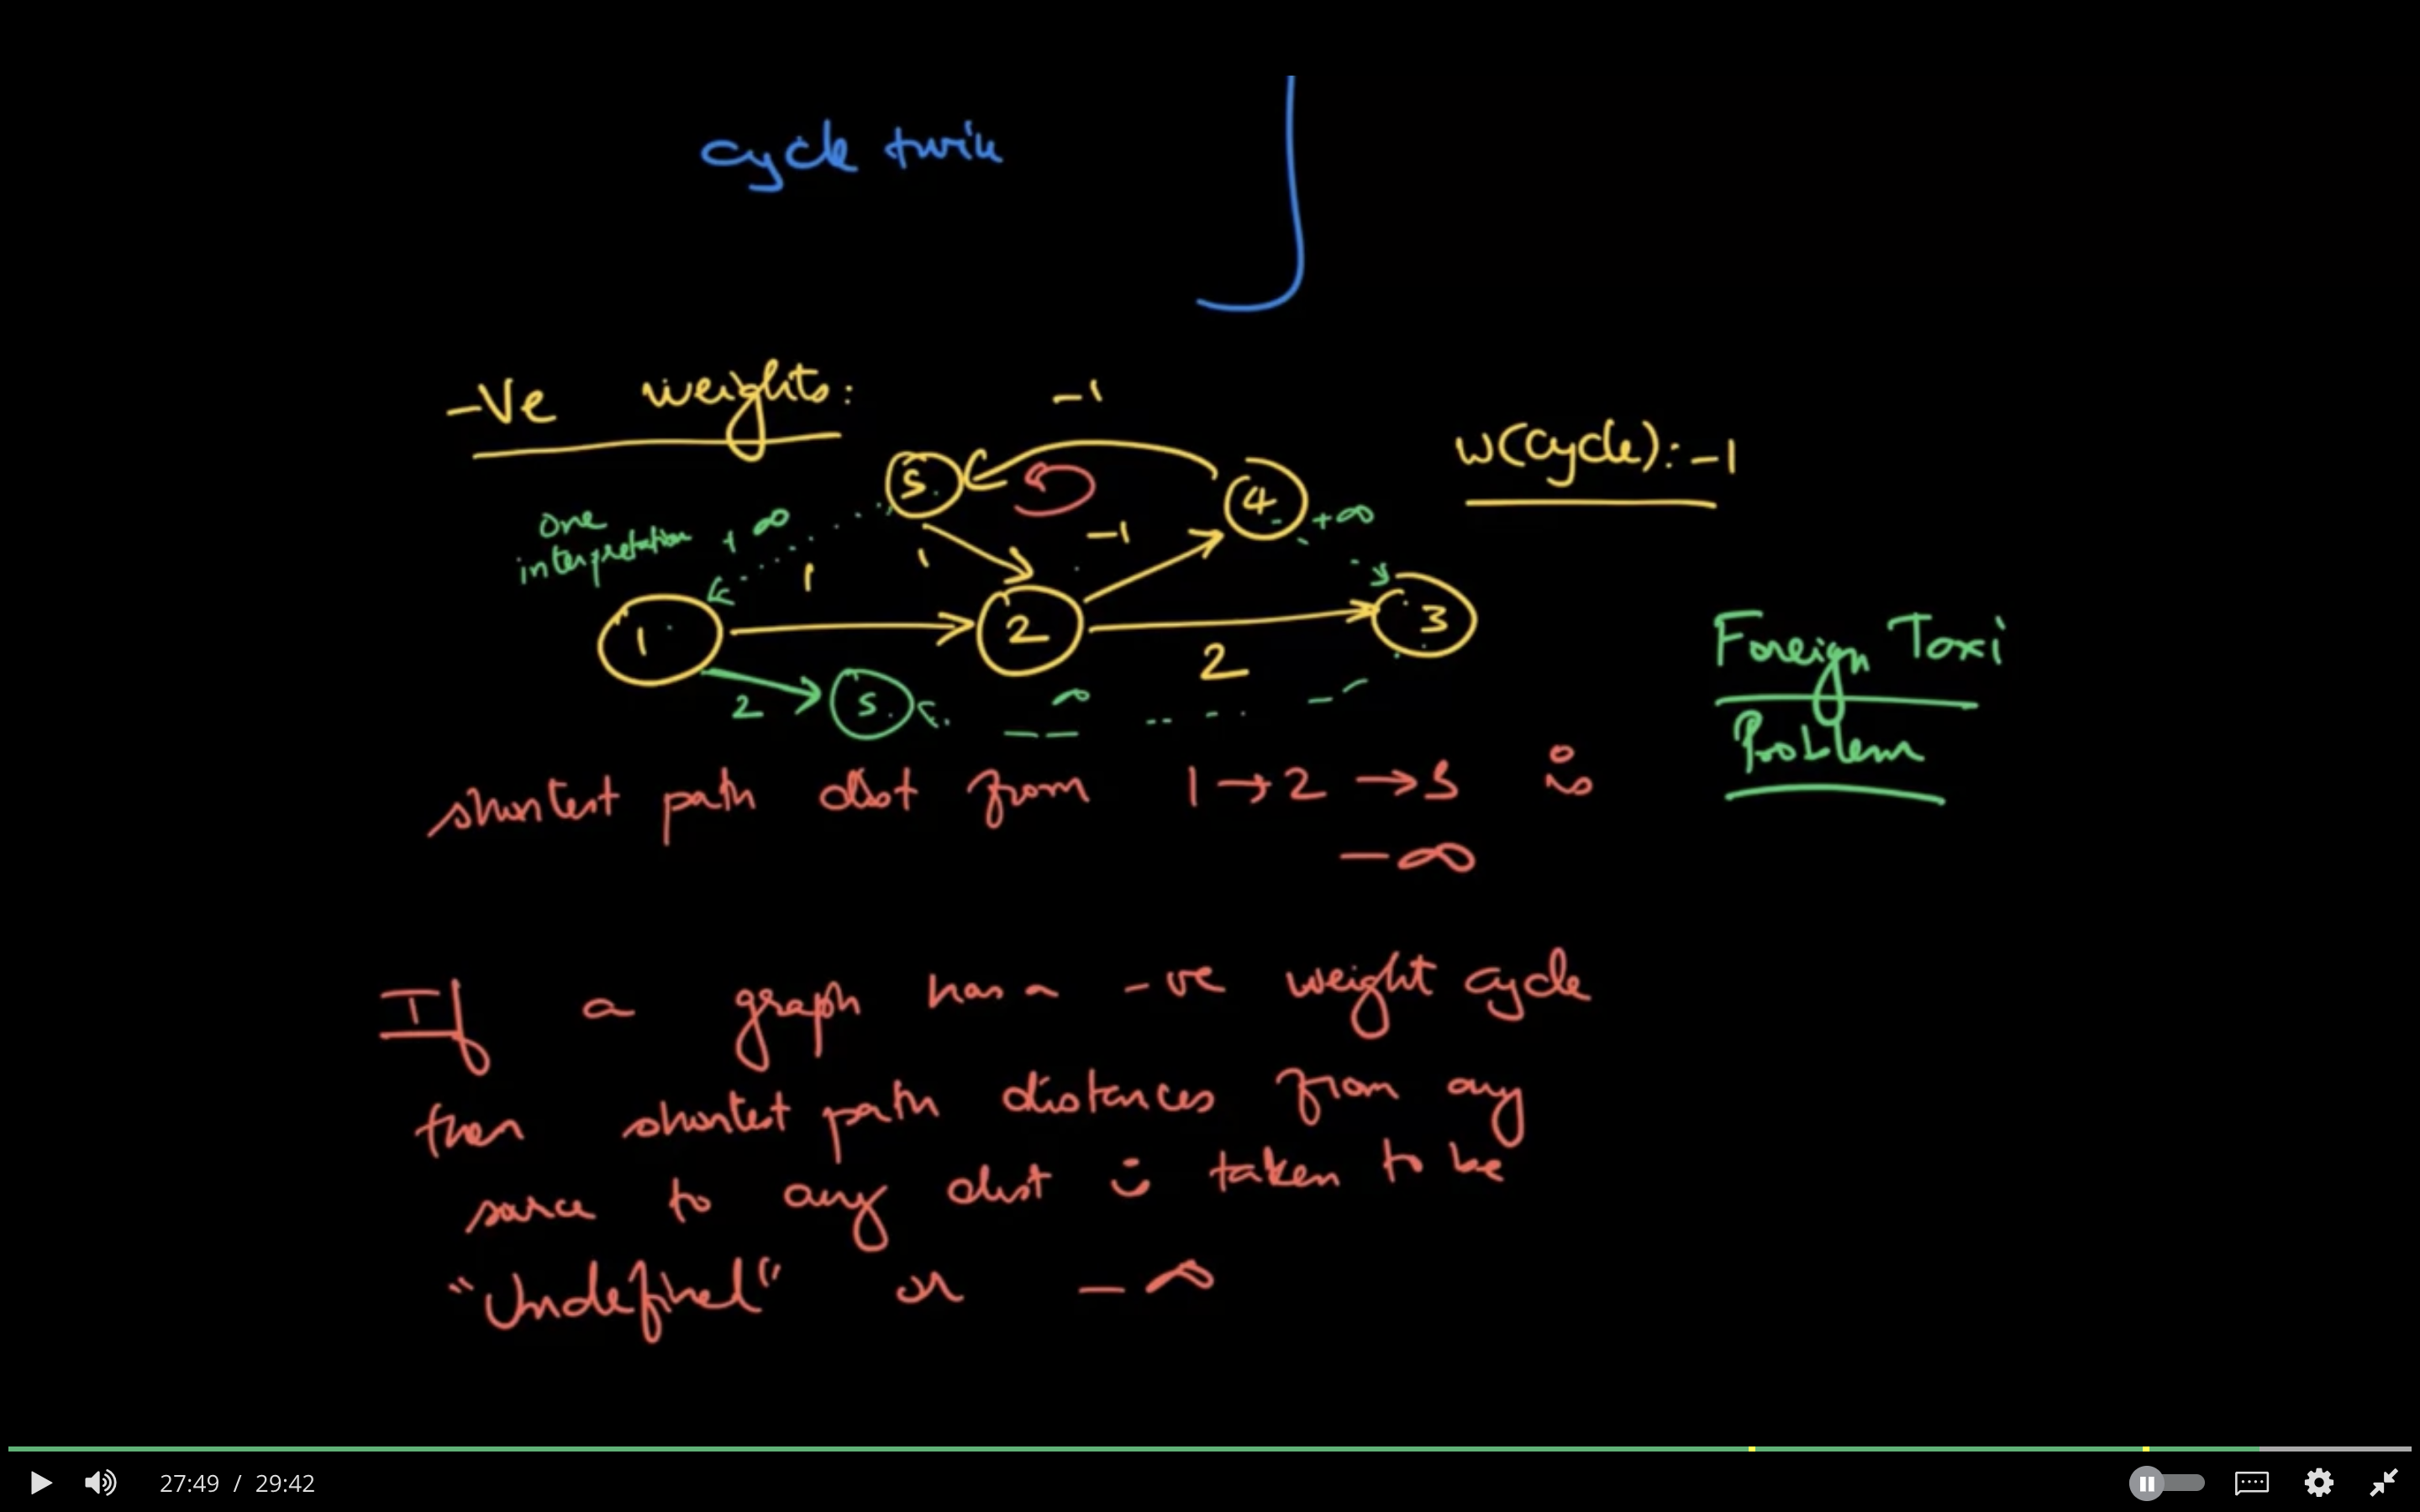 cycle twice
-Ve weights:
-1
w(cycle): -1
5
4
one
interpretation
+ ∞
+∞
-1
1
1
1
2
3
2
Foreign Taxi
Problem
2
5
∞
shortest path dist from 1 → 2 → 3 is
-∞
If a graph has a -ve weight cycle
then shortest path distances from any
source to any dist is taken to be
"Undefined" or -∞
27:49 / 29:42